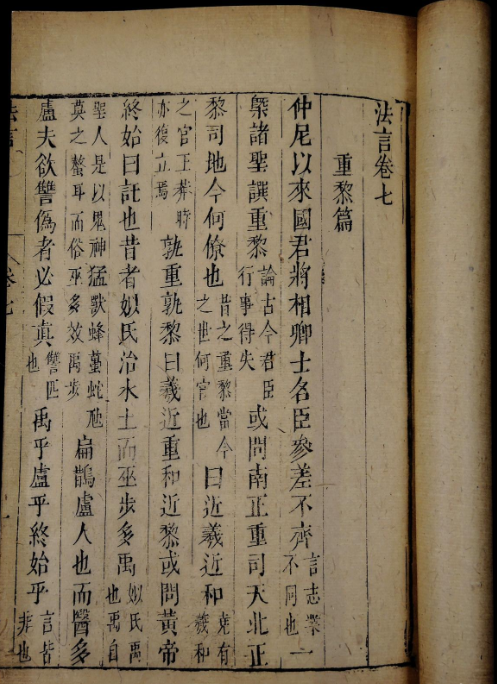 法言卷七
重黎篇
仲尼以來國君將相卿士名臣參差不齊言志業不同也一
槩諸聖譔重黎論古今君臣行事得失或問南正重司天北正
黎司地今何僚也昔之重黎當今之世何官也曰近羲近和堯有羲和
之官王莽時亦復立焉孰重孰黎曰羲近重和近黎或問黃帝
終始曰託也昔者姒氏治水土而巫步多禹姒氏禹也禹自
聖人是以鬼神猛獸蜂蠆蛇虺莫之螫耳而俗巫多效禹步扁鵲盧人也而醫多
盧夫欲讐僞者必假真讐匹也禹乎盧乎終始乎言皆非也